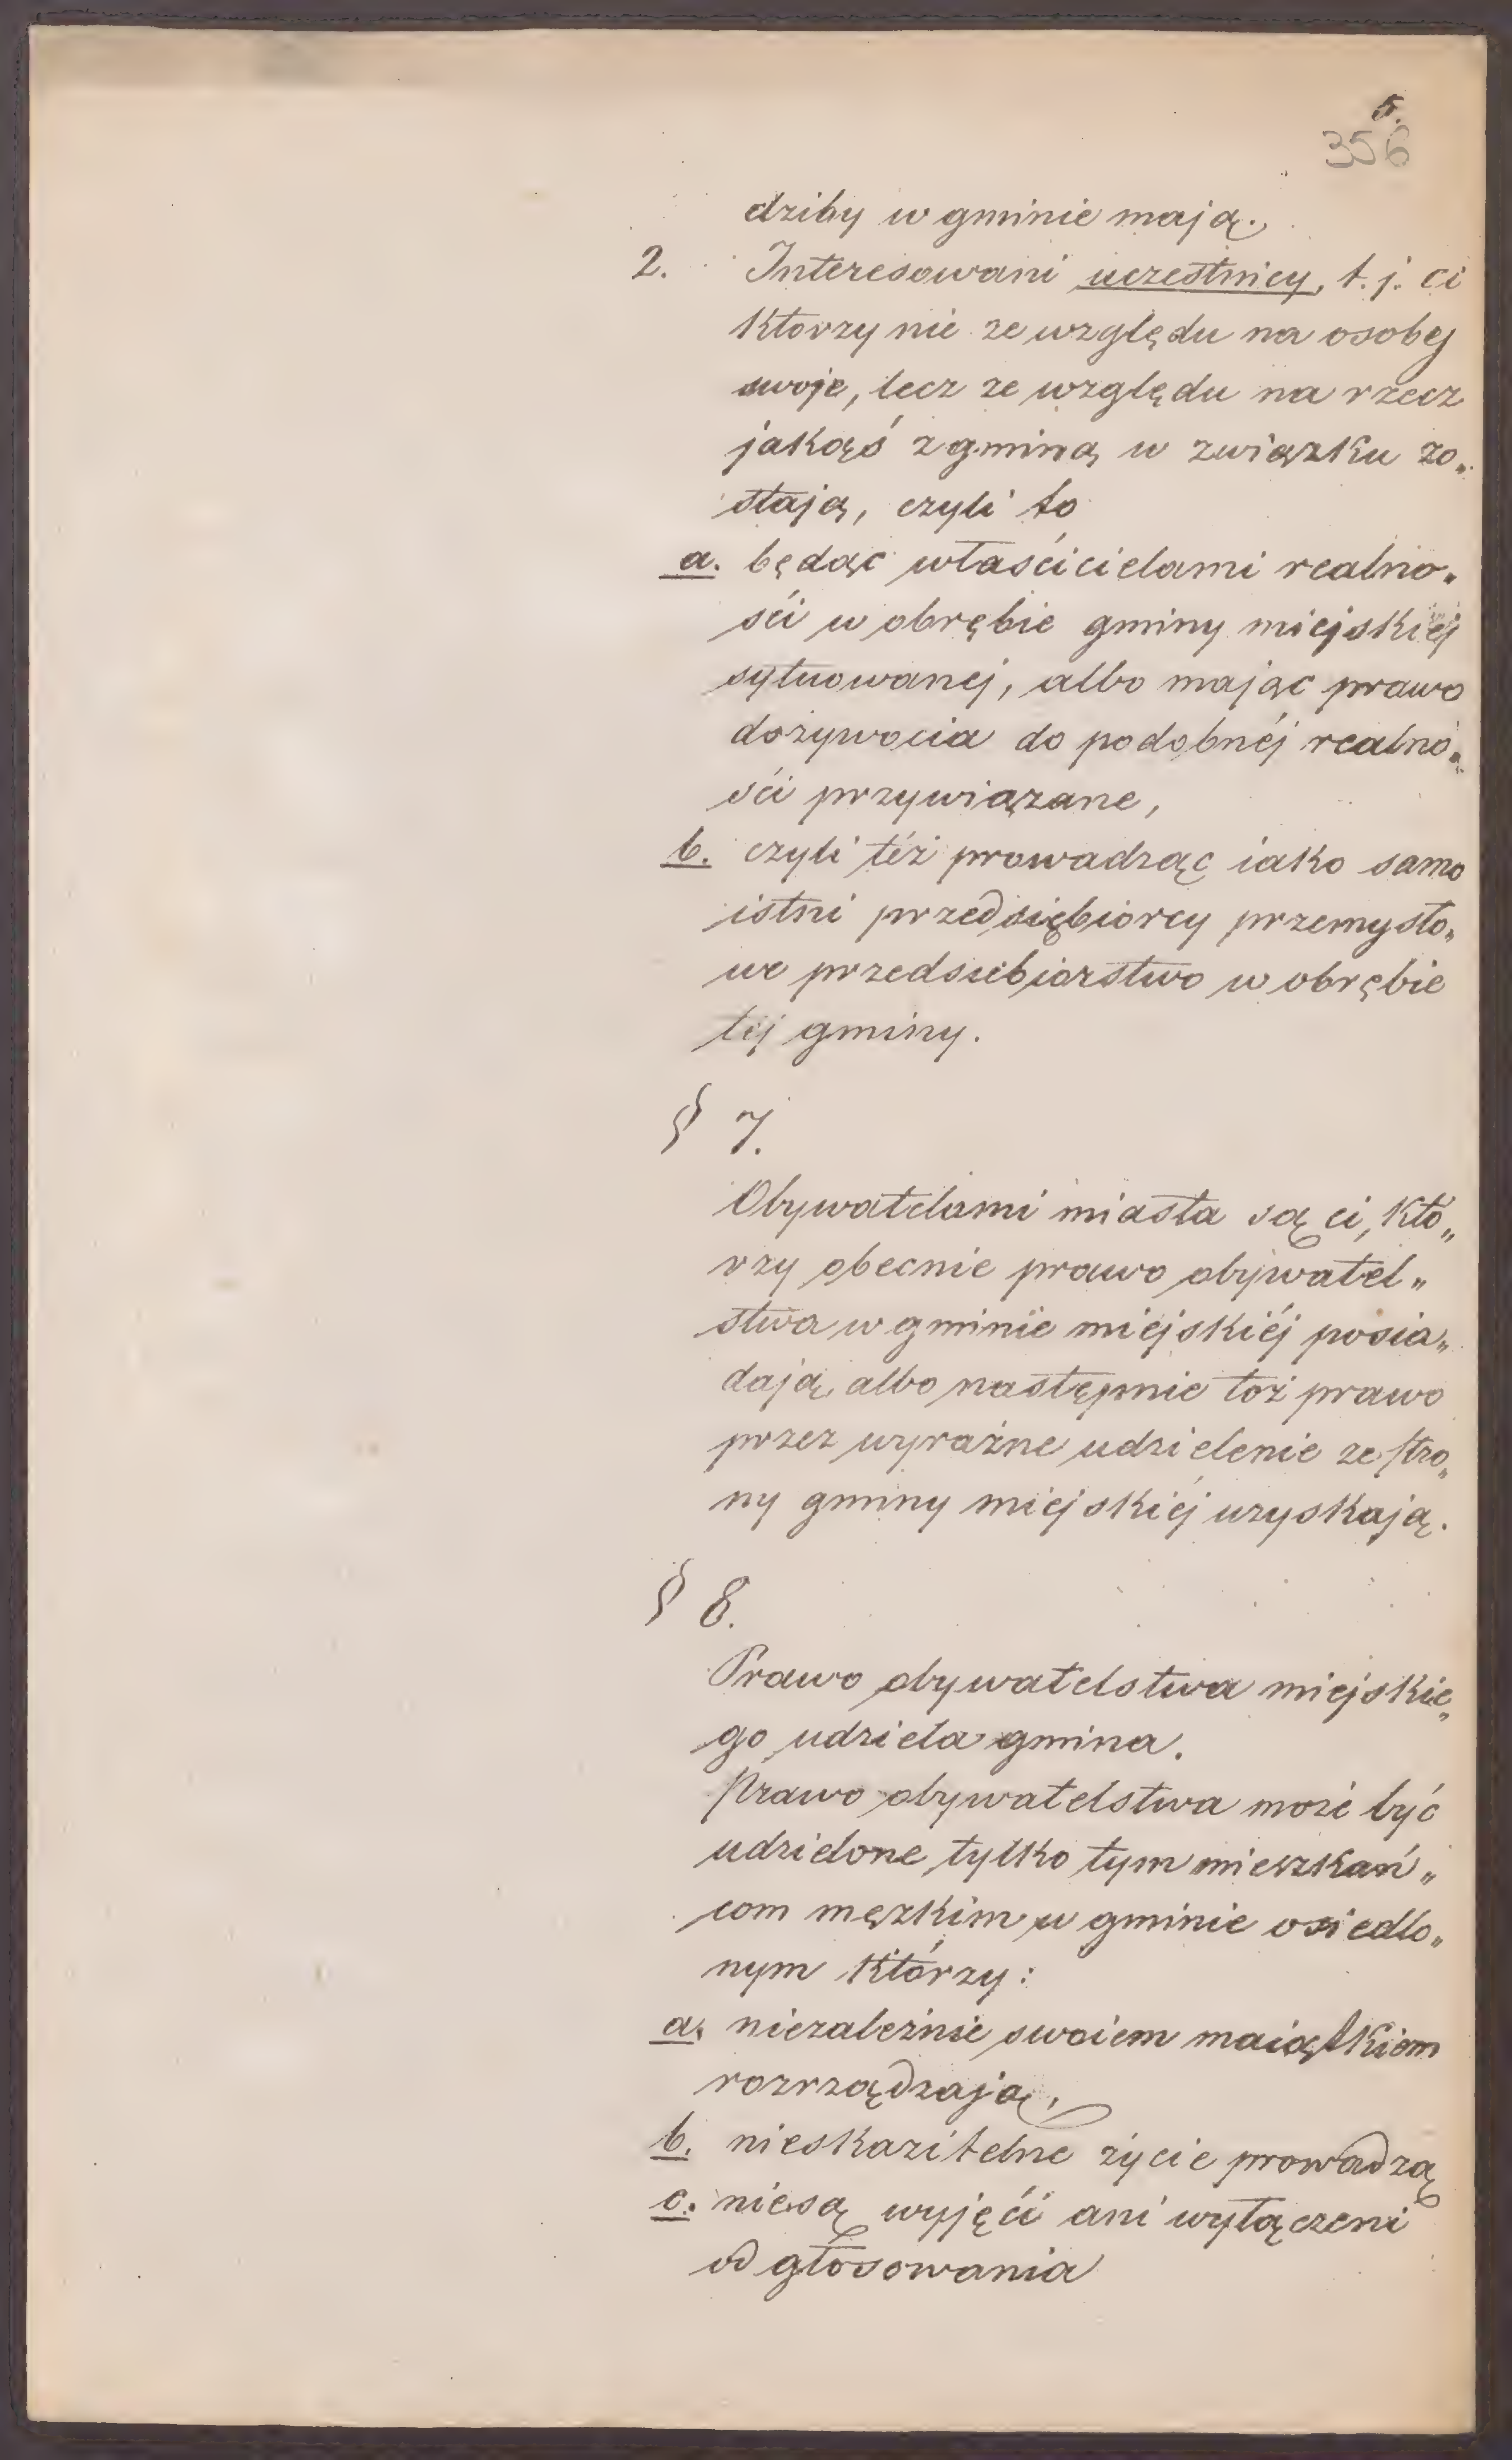 5.
356
dziby w gminie mają.
2. Interesowani uczestnicy, t. j. ci
którzy nie ze względu na osobę
swoje, lecz ze względu na rzecz
jakąś z gminą w związku zo„
stają, czyli to
a. będąc właścicielami realno„
ści w obrębie gminy miejskiéj
sytuowanej, albo mając prawo
dożywocia do podobnéj realno„
ści przywiązane,
b. czyli téż prowadząc iako samo
istni przedsiębiorcy przemysło„
we przedsiebiorstwo w obrębie
téj gminy.
§ 7.
Obywatelami miasta są ci, któ„
rzy obecnie prawo obywatel„
stwa w gminie miejskiéj posia„
dają, albo następnie toż prawo
przez wyraźne udzielenie ze stro„
ny gminy miejskiéj uzyskają.
§ 8.
Prawo obywatelstwa miejskie„
go udziela gmina.
Prawo obywatelstwa może być
udzielone tylko tym mieszkań„
com męzkim w gminie osiedlo„
nym którzy:
a. niezależnie swoiem maiątkiem
rozrządzają,
b. nieskazitelne życie prowadzą
c. niesą wyjęći ani wyłączeni
od głosowania